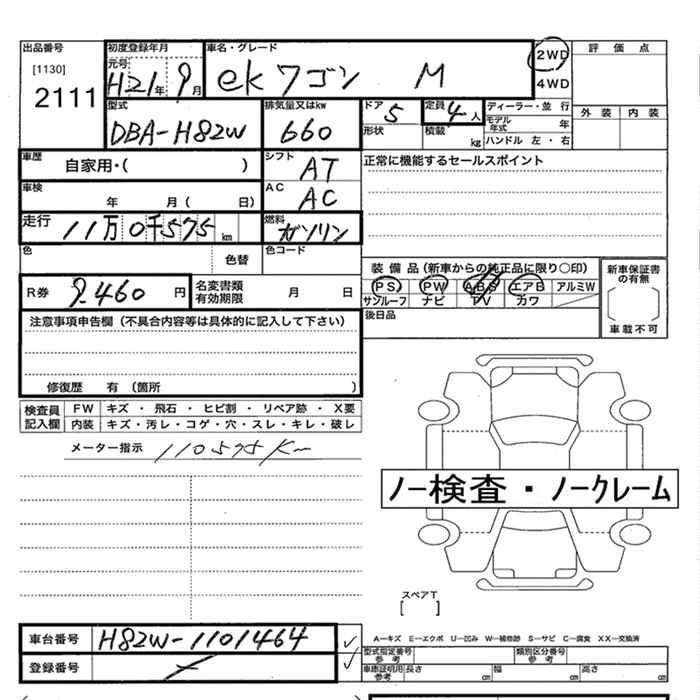 出品番号 初度登録年月 車名・グレード 2WD 評価点
[1130] 元号
2111 H21年 9月 ekワゴン M 4WD
型式 排気量又はkw ドア 5 定員 4人 ディーラー・並行 外装 内装
DBA-H82W 660 形状 積載 kg モデル年式 年
ハンドル 左・右
車歴 自家用・( ) シフト AT 正常に機能するセールスポイント
車検 年 月( 日) AC AC
走行 11万0千575km 燃料 ガソリン
色 色替 色コード
装備品(新車からの純正品に限り○印) 新車保証書の有無
R券 9.460円 名変書類有効期限 月 日 PS PW ABS エアB アルミW
サンルーフ ナビ TV カワ
注意事項申告欄(不具合内容等は具体的に記入して下さい) 後日品 車載不可
修復歴 有 (箇所 )
検査員記入欄 FW キズ・飛石・ヒビ割・リペア跡・X要
内装 キズ・汚レ・コゲ・穴・スレ・キレ・破レ
メーター指示 110575Km
ノー検査・ノークレーム
スペアT
[ ]
車台番号 H82W-1101464 A―キズ E―エクボ U―凹み W―補修跡 S―サビ C―腐食 XX―交換済
登録番号 型式指定番号 参考 類別区分番号 参考
車庫証明用参考 長さ cm 幅 cm 高さ cm